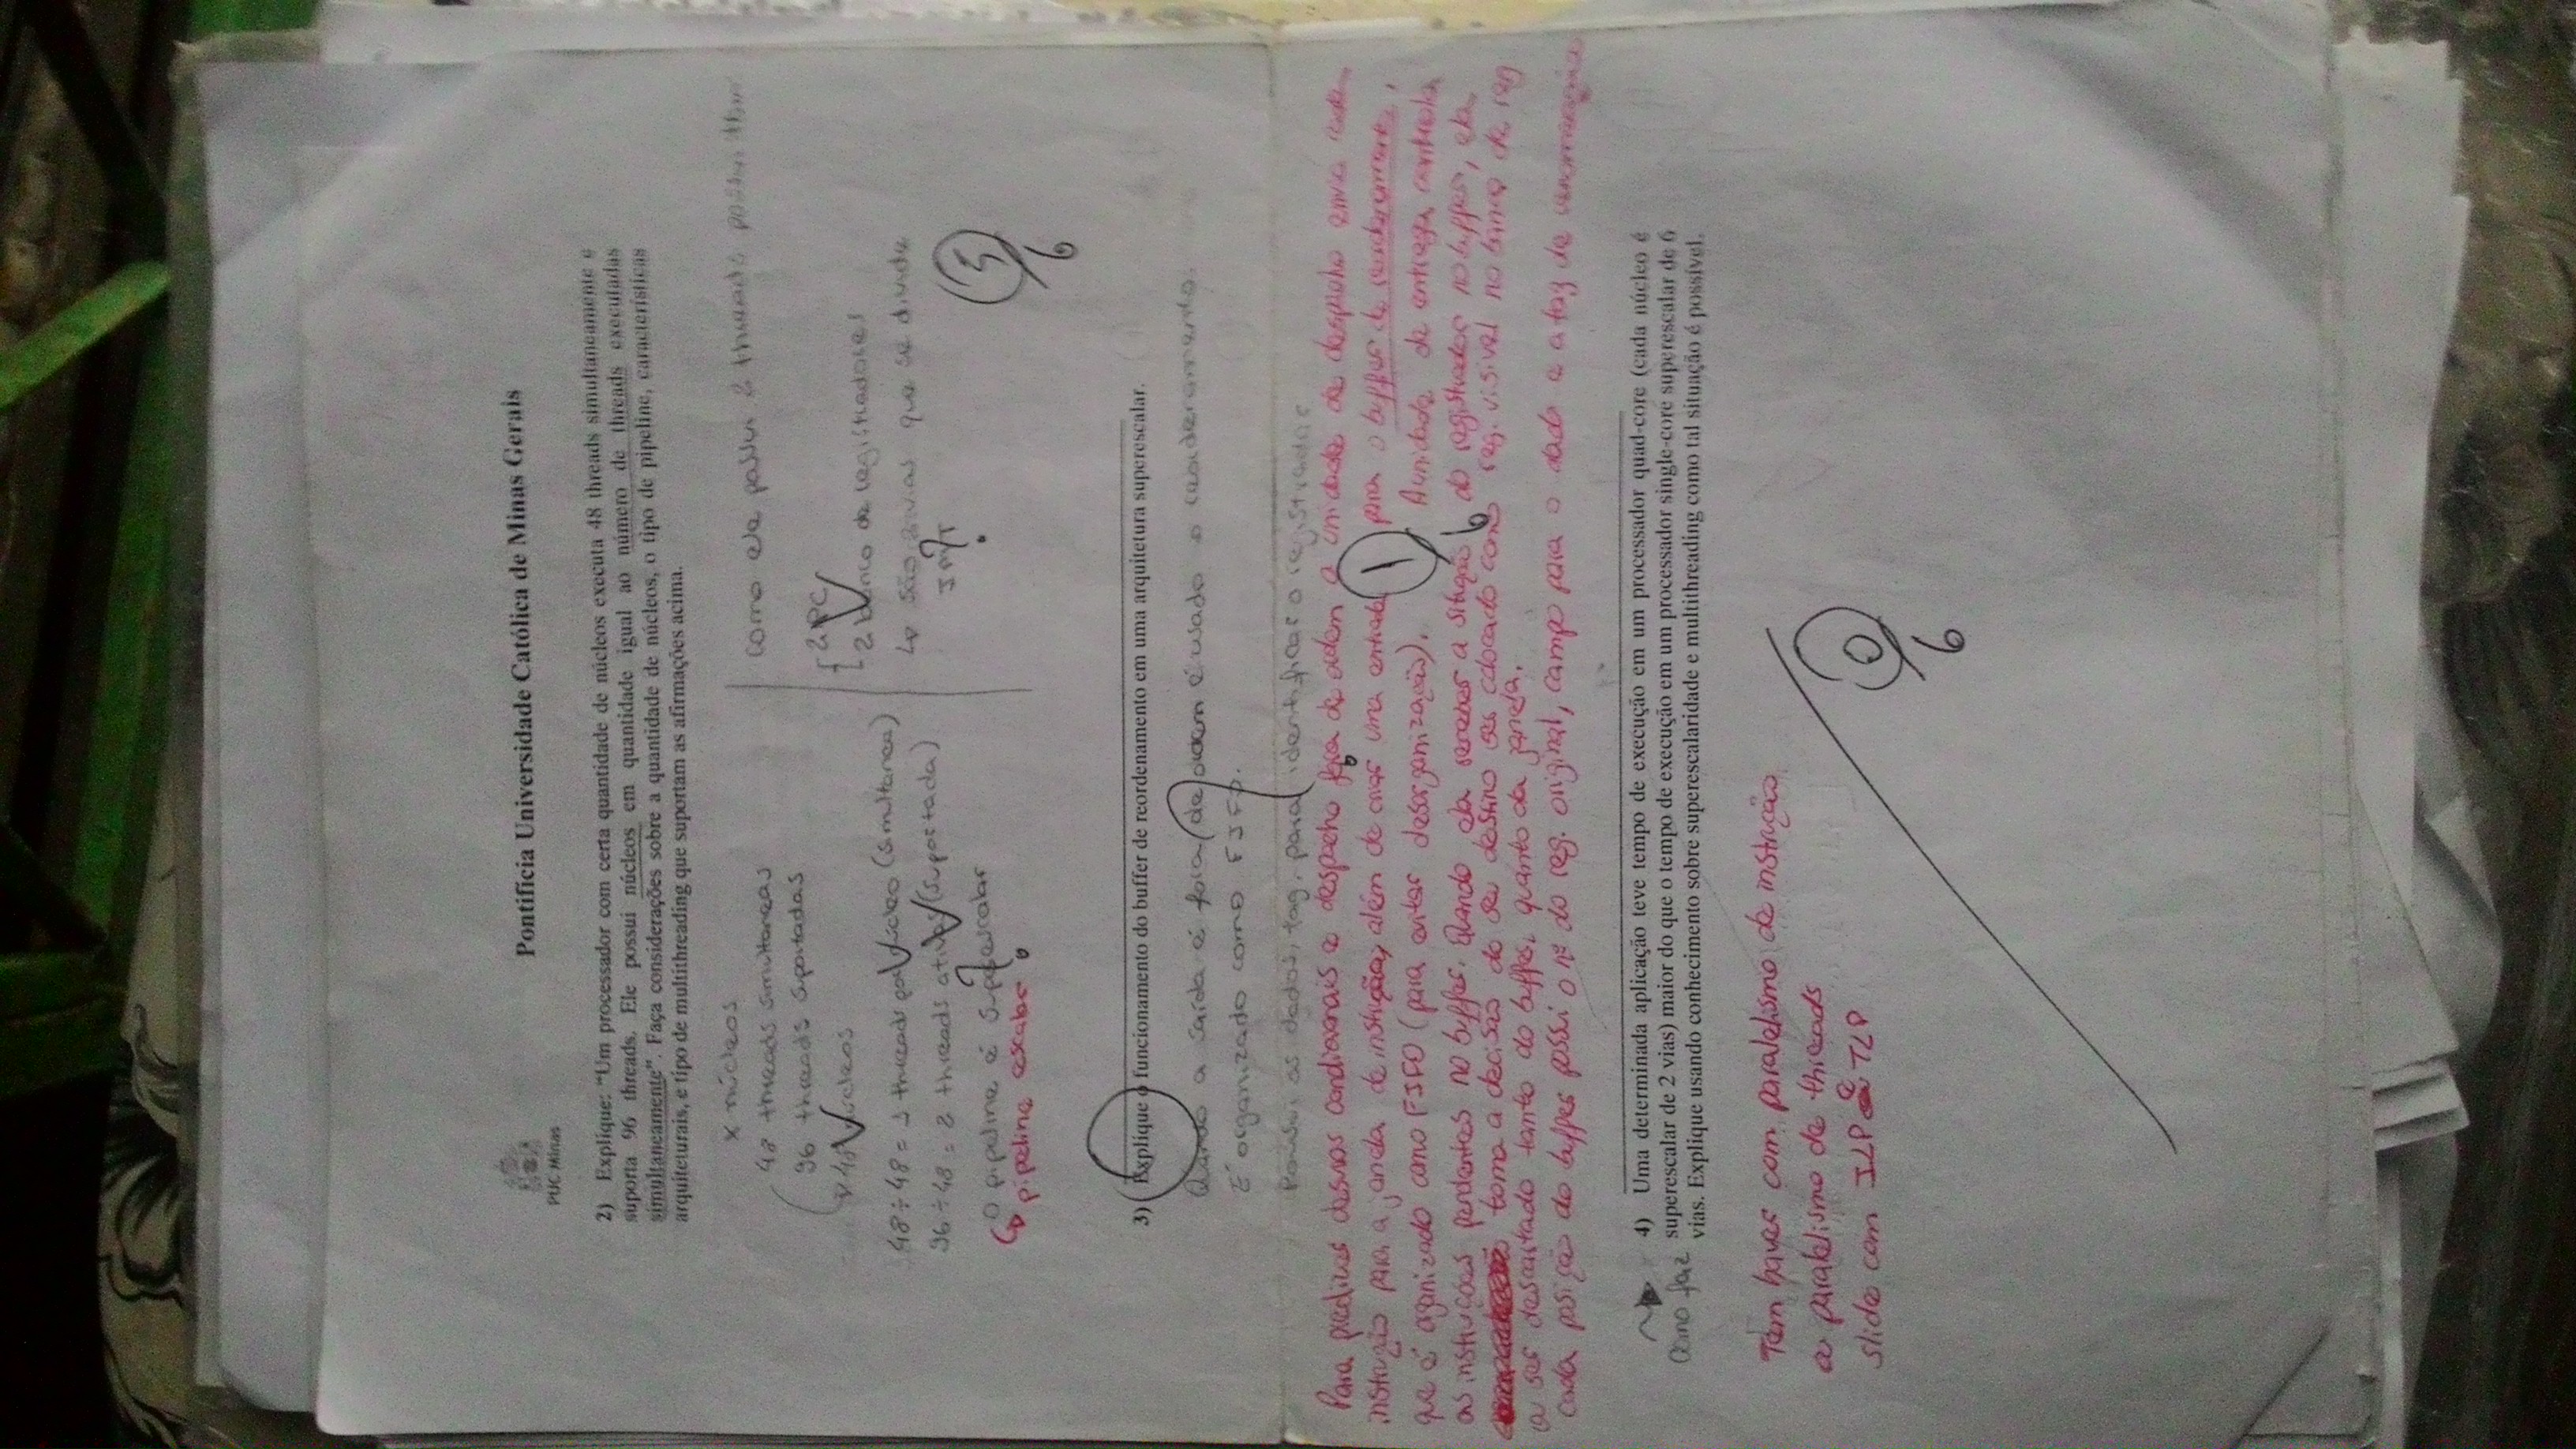 Pontifícia Universidade Católica de Minas Gerais
PUC Minas
2) Explique: “Um processador com certa quantidade de núcleos executa 48 threads simultaneamente e
suporta 96 threads. Ele possui núcleos em quantidade igual ao número de threads executadas
simultaneamente”. Faça considerações sobre a quantidade de núcleos, o tipo de pipeline, características
arquiteturais, e tipo de multithreading que suportam as afirmações acima.
x núcleos
48 threads simultaneas
96 threads suportadas
48 núcleos
48 ÷ 48 = 1 threads por núcleo (simultanea)
96 ÷ 48 = 2 threads ativas (suportada)
O pipeline é superescalar
pipeline escalar
como ele possui 2 threads
2 PC
2 banco de registradores
são 2 vias que se divide
IMT
?
5
6
3) Explique o funcionamento do buffer de reordenamento em uma arquitetura superescalar.
Quando a saída é fora de ordem é usado o
É organizado como FIFO.
Possui os dados, tag, para identificar o registrador
Para predizer desvios condicionais e despacho fora de ordem a unidade de despacho envia cada
instrução para a janela de instrução, além de criar uma entrada para o buffer de reordenamento,
que é organizado como FIFO (para evitar desorganização). A unidade de entrega controla
as instruções pendentes no buffer. Quando ela receber a situação do registrador no buffer, ela
toma a decisão do seu destino ser colocado como reg. visivel no banco de reg
ou ser descartado tanto do buffer, quanto da janela.
cada posição do buffer possui o nº do reg. original, campo para o dado e a tag de
1
6
4) Uma determinada aplicação teve tempo de execução em um processador quad-core (cada núcleo é
superescalar de 2 vias) maior do que o tempo de execução em um processador single-core superescalar de 6
vias. Explique usando conhecimento sobre superescalaridade e multithreading como tal situação é possível.
Como faz
Tem haver com paralelismo de instrução
e paralelismo de threads
slide com ILP e TLP
0
6